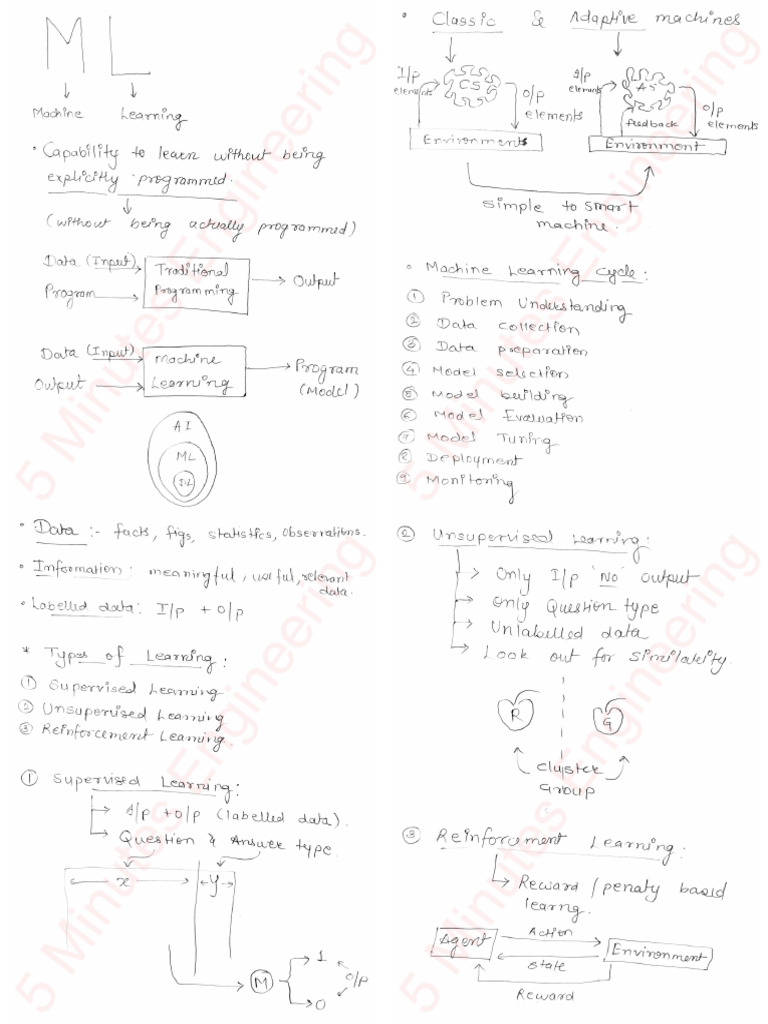 ML
Machine Learning
• Capability to learn without being
explicitly programmed.
(without being actually programmed)
Data (Input)
Program
Traditional
Programming
Output
Data (Input)
Output
Machine
Learning
Program
(Model)
AI
ML
DL
• Data :- facts, figs, statistics, observations.
• Information : meaningful, useful, relevant
data.
• Labelled data: I/p + O/p
* Types of Learning :
① Supervised Learning
② Unsupervised Learning
③ Reinforcement Learning.
① Supervised Learning:
I/p + o/p (labelled data).
Question & Answer type.
x
y
M
1
0
o/p
• Classic & Adaptive machines
I/p
elements
CS
O/p
elements
Environments
I/p
elements
AS
feedback
O/p
elements
Environment
simple to smart
machine.
• Machine Learning cycle:
① Problem Understanding
② Data collection
③ Data preparation
④ Model selection
⑤ Model building
⑥ Model Evaluation
⑦ Model Tuning
⑧ Deployment
⑨ Monitoring
② Unsupervised Learning:
Only I/p 'No' output
Only Question type
Unlabelled data
Look out for similarity.
R
G
cluster
Group
③ Reinforcement Learning:
Reward / penalty based
learng.
Agent
Action
State
Environment
Reward
5 Minutes Engineering
5 Minutes Engineering
5 Minutes Engineering
5 Minutes Engineering